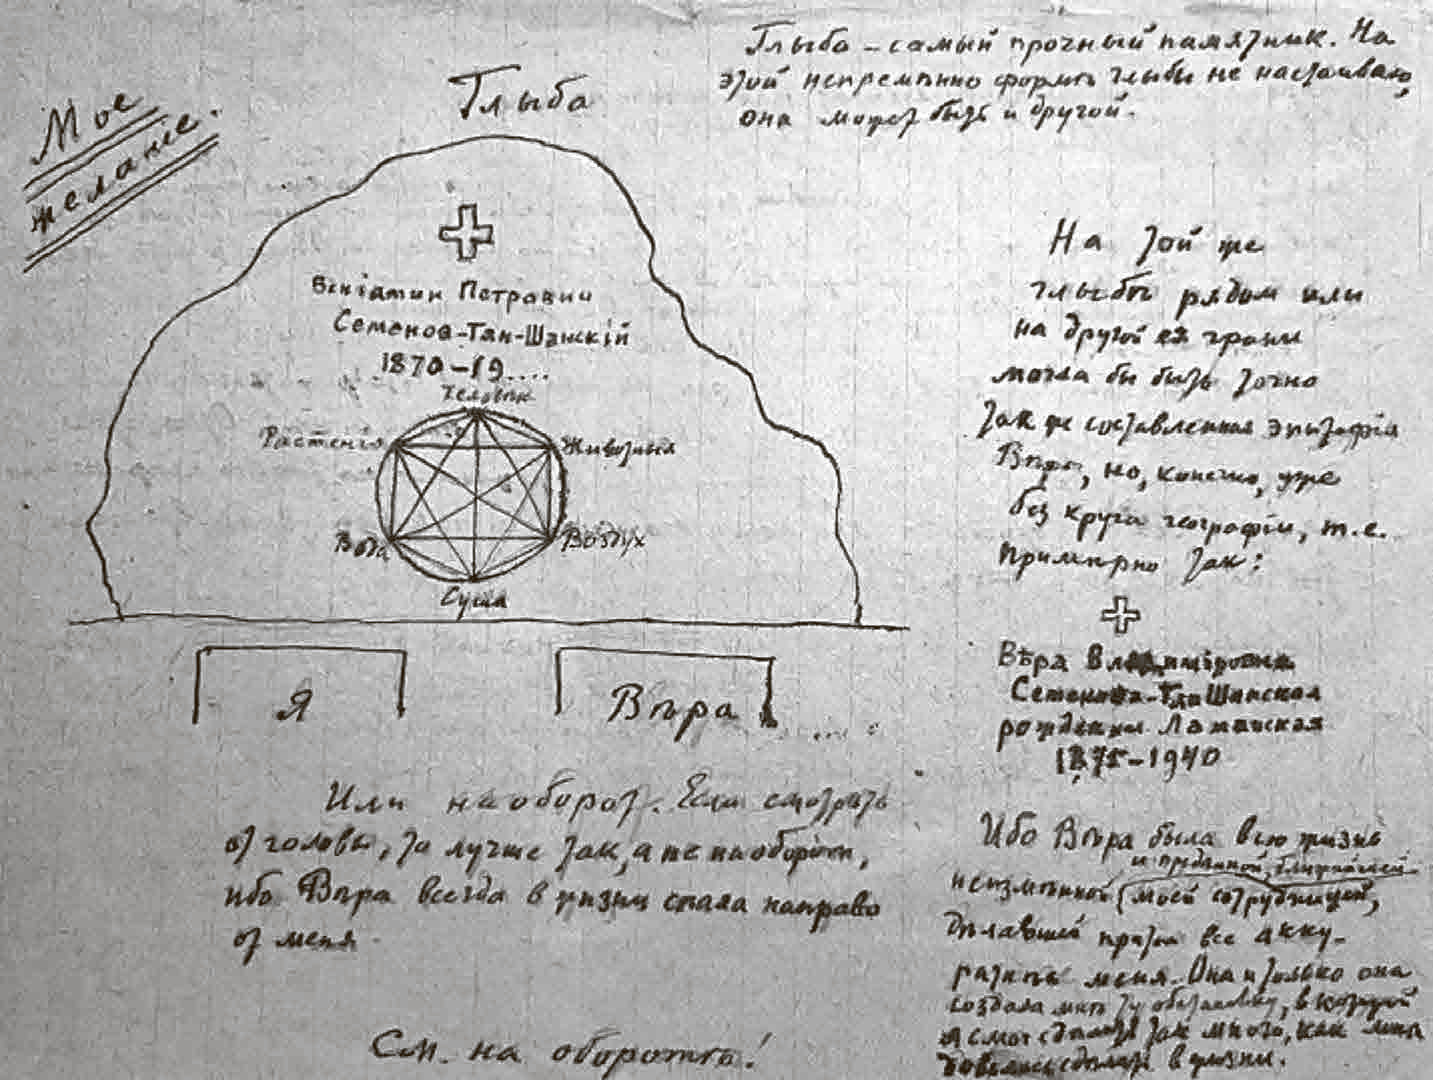 Мое
желание.
Глыба
Глыба – самый прочный памятник. На
этой непременно форме глыбы не настаиваю,
она может быть и другой.
Веніамин Петрович
Семенов-Тян-Шанскій
1870–19....
Человѣк
Растенія
Животныя
Вода
Воздух
Суша
Я
Вѣра
Или наоборот. Если смотрѣть
от головы, то лучше так, а не наоборот,
ибо Вѣра всегда в жизни спала направо
от меня.
См. на оборотѣ!
На той же
глыбѣ рядом или
на другой ея грани
могла бы быть точно
так же составленная эпитафія
Вѣрѣ, но, конечно, уже
без круга географіи, т.е.
примѣрно так:
Вѣра Владиміровна
Семенова-Тян-Шанская
рожденная Ламанская
1875–1940
Ибо Вѣра была всю жизнь
и преданной, ближайшей
неизмѣнной моей сотрудницей,
дѣлавшей притом все акку-
ратнѣе меня. Она и только она
создала мнѣ ту обстановку, в которой
я смог сдѣлать так много, как мнѣ
довелось сдѣлать в жизни.